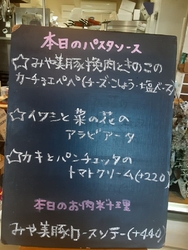 本日のパスタソース
☆みや美豚挽肉ときのこの
カーチョエペペ(チーズ・こしょう・塩ベース)
☆イワシと菜の花の
アラビアータ
☆カキとパンチェッタの
トマトクリーム(+220)
本日のお肉料理
みや美豚肩ロースソテー(+440)